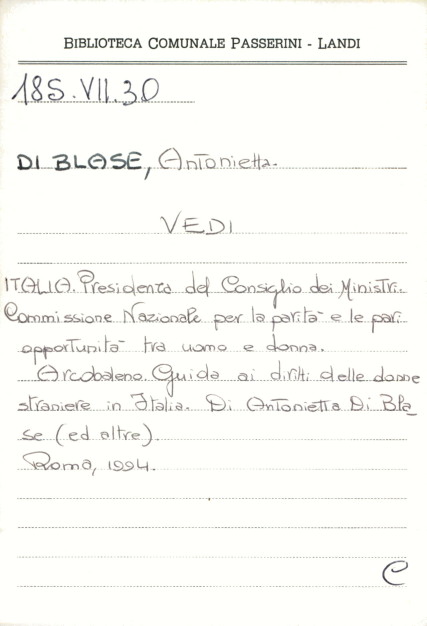 BIBLIOTECA COMUNALE PASSERINI - LANDI
18S.VII.30
DI BLASE, Antonietta.
VEDI
ITALIA. Presidenza del Consiglio dei Ministri.
Commissione Nazionale per la parità e le pari
opportunità tra uomo e donna.
Arcobaleno. Guida ai diritti delle donne
straniere in Italia. Di Antonietta Di Bla
se (ed altre).
Roma, 1994.
C